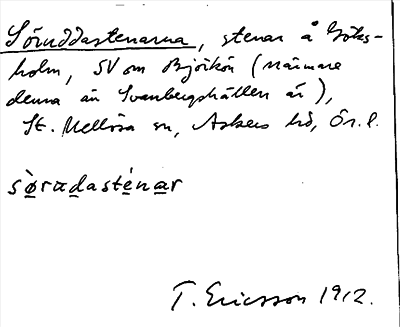 Söruddastenarna, stenar å Göks-
holm, SV om Björkön (närmare
denna än Svanbergshällen är),
St. Mellösa sn, Askers hd, Ör. l.
sø̀radastènar
T. Ericsson 1912.